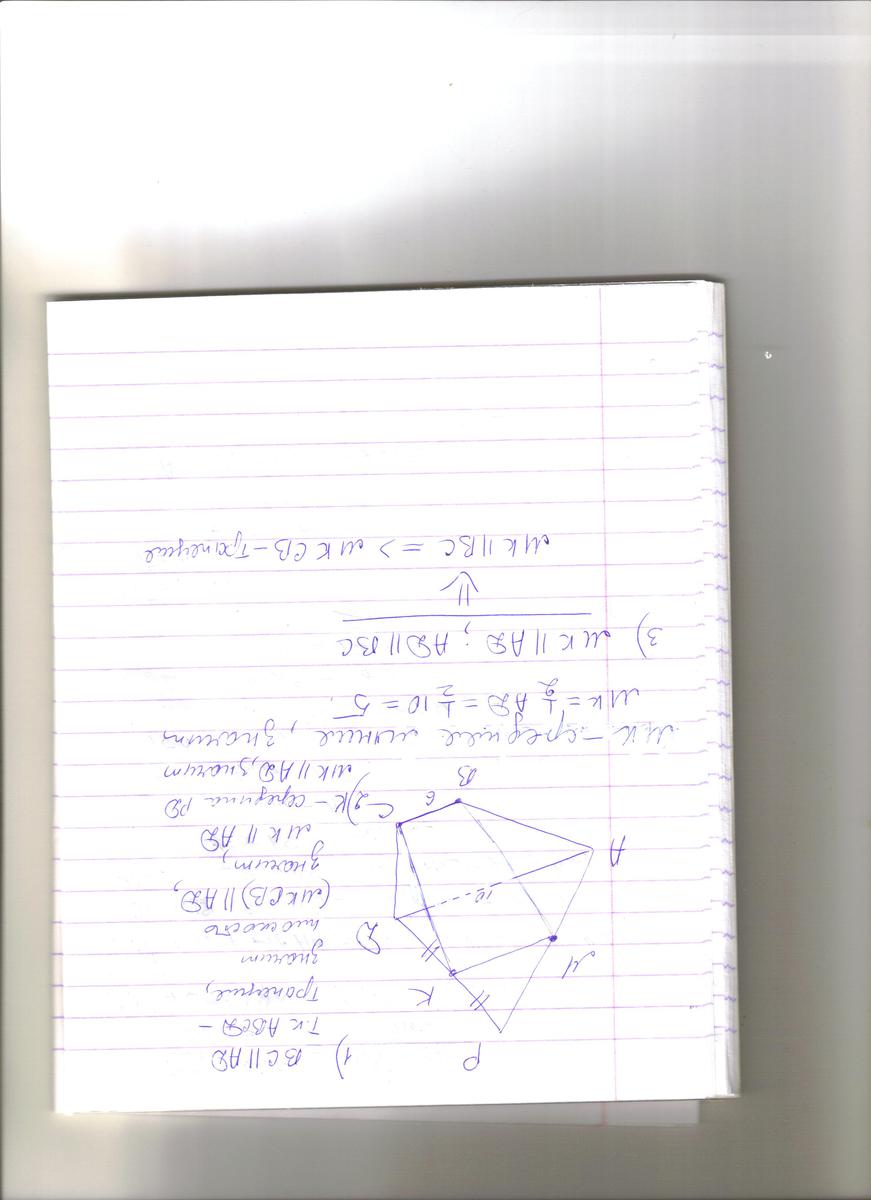 P
K
M
D
10
A
C
6
B
1) BC || AD
т.к ABCD –
трапеция,
значит
плоскость
(MKCB) || AD,
значит,
MK || AD
2) K – середина PD
MK || AD, значит
MK – средняя линия, значит
MK = 1/2 AD = 1/2 10 = 5.
3) MK || AD ; AD || BC
⇓
MK || BC => MKCB – трапеция